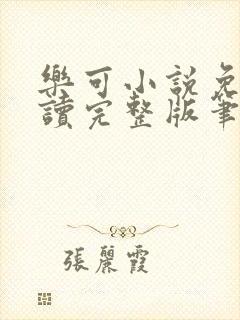 樂可小説免
讀完整版筆
張麗霞